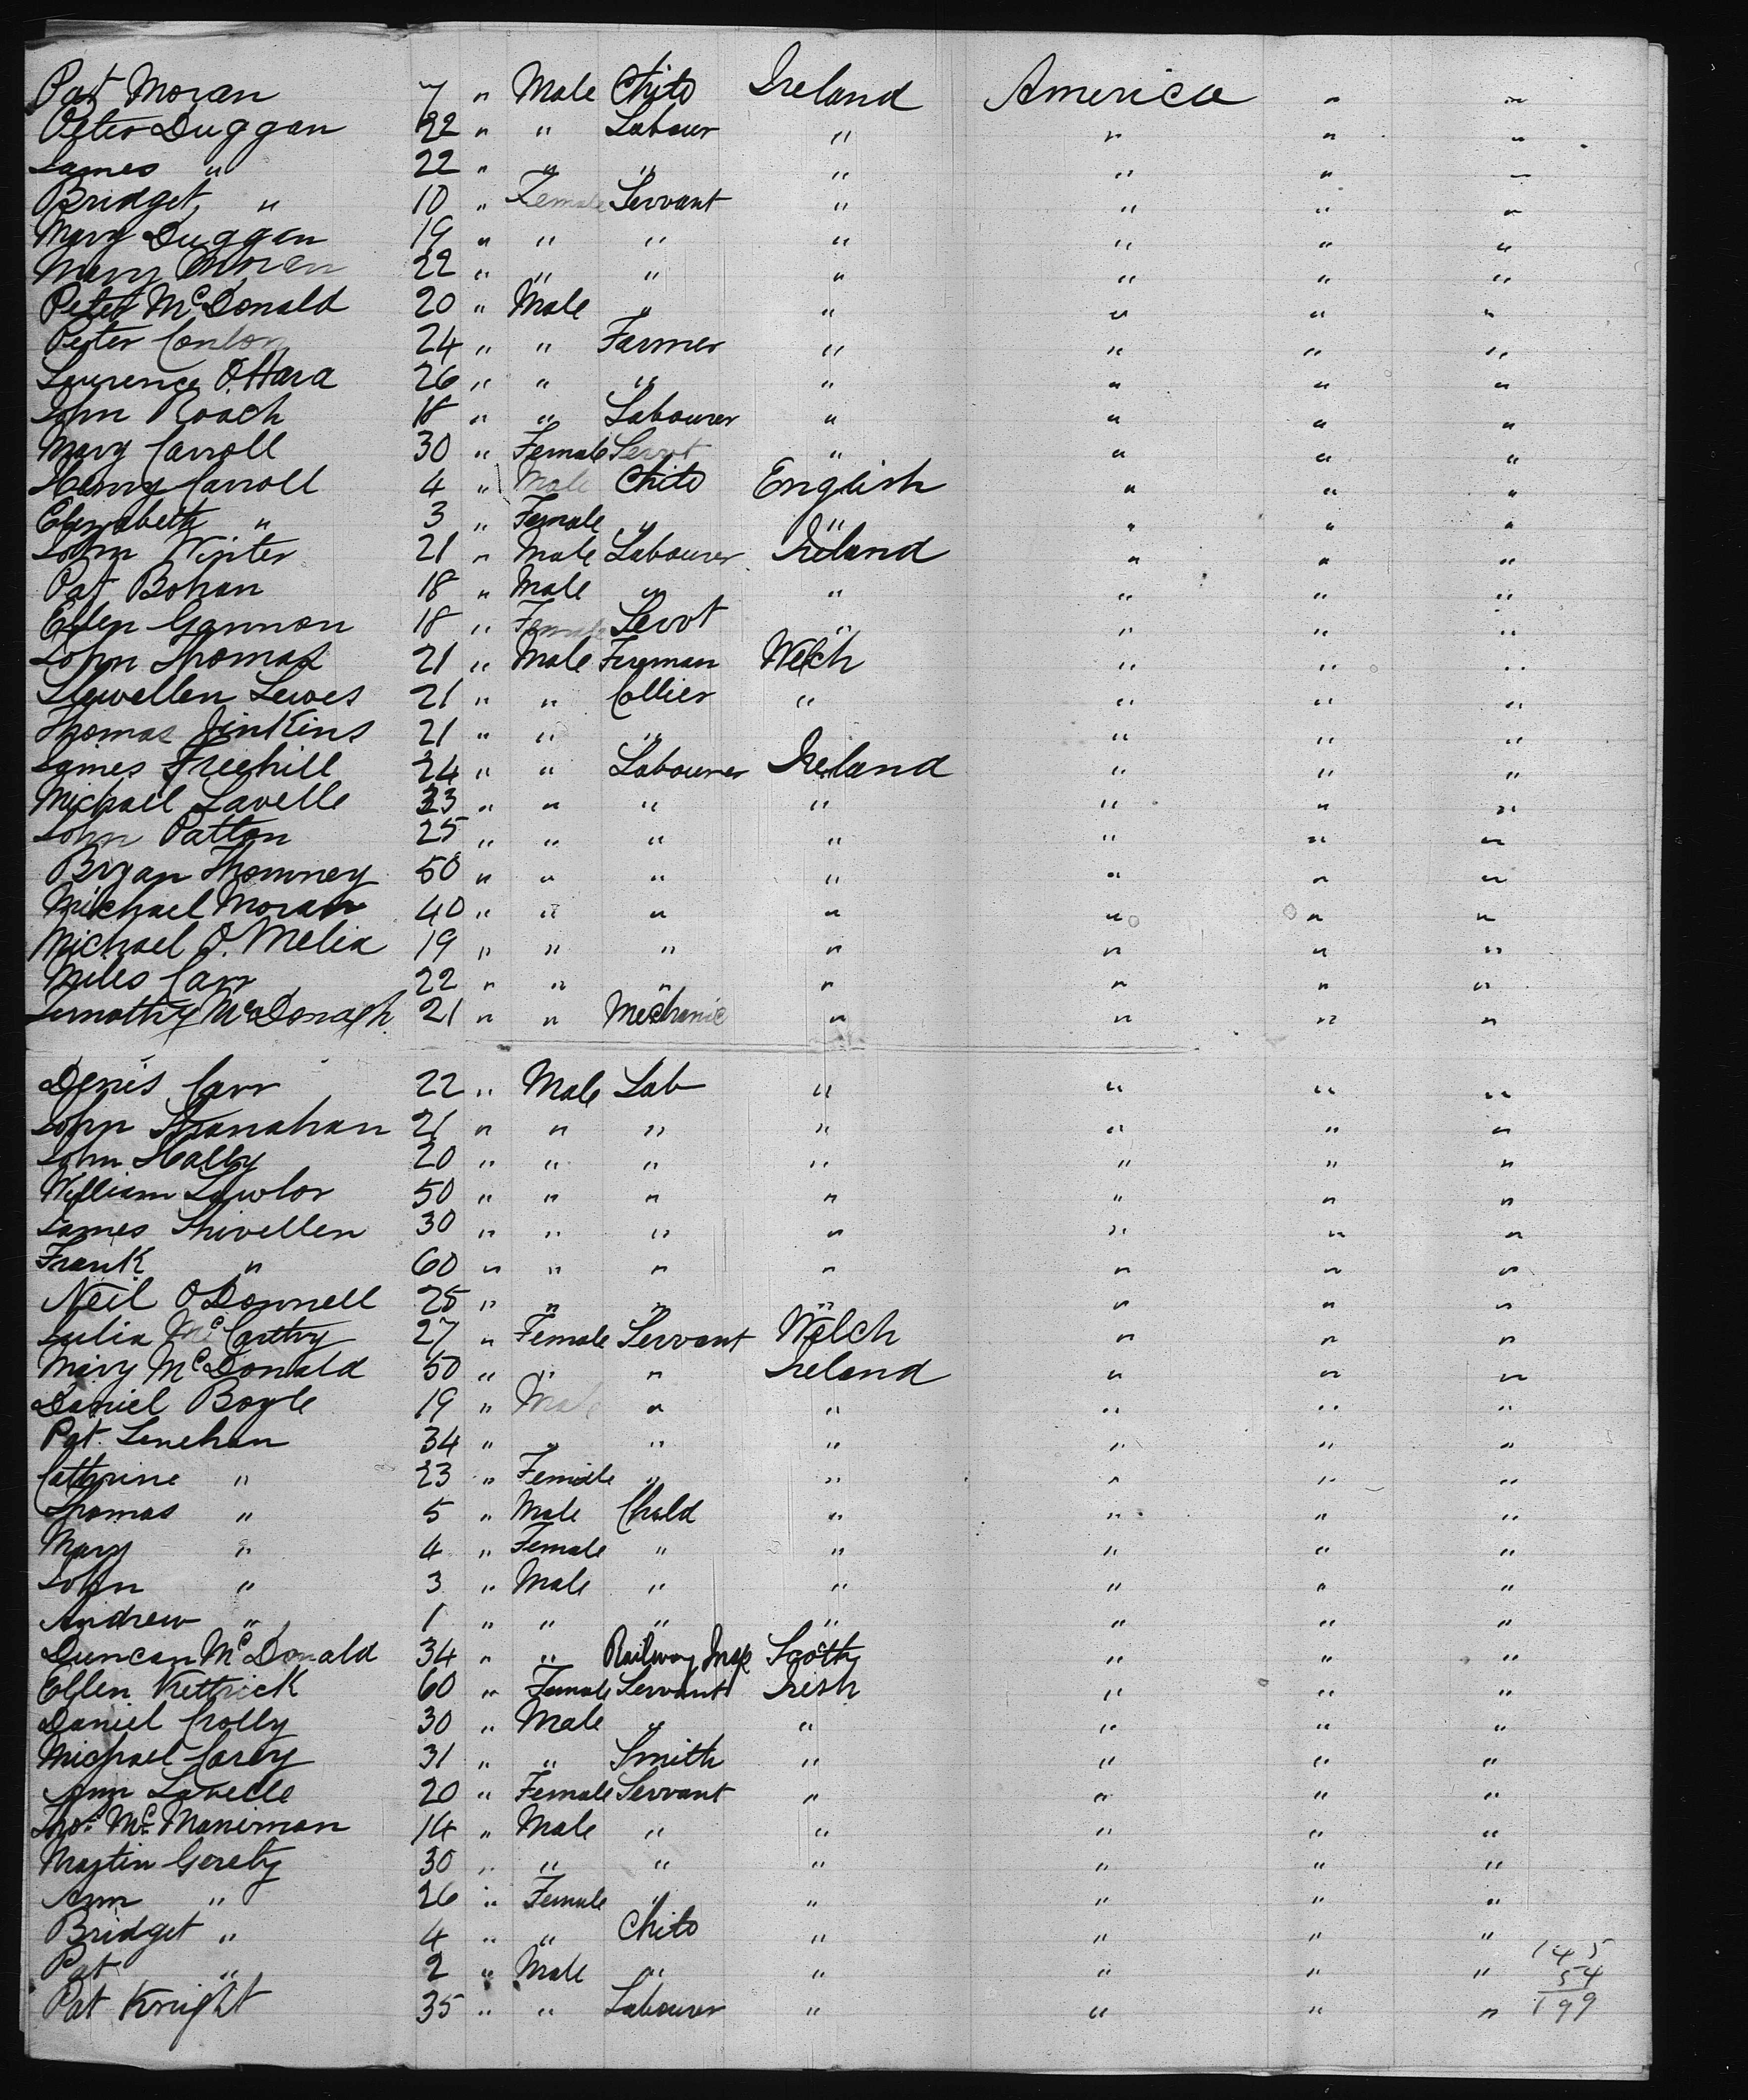 Pat Moran 7 " Male Child Ireland America " "
Peter Duggan 22 " " Labour " " " "
James " 22 " " " " " " "
Bridget " 10 " Female Servant " " " "
Mary Duggan 19 " " " " " " "
Mary Moran 22 " " " " " " "
Peter McDonald 20 " Male " " " " "
Peter Conlon 24 " " Farmer " " " "
Laurence O'Hara 26 " " " " " " "
John Roach 18 " " Labourer " " " "
Mary Carroll 30 " Female Servt " " " "
Henry Carroll 4 " Male Child English " " "
Elizabeth " 3 " Female " " " " "
John Winter 21 " Male Labourer Ireland " " "
Pat Bohan 18 " Male " " " " "
Ellen Gannon 18 " Female Servt " " " "
John Thomas 21 " Male Fireman Welch " " "
Llewellen Lewes 21 " " Collier " " " "
Thomas Jinkins 21 " " " " " " "
James Freehill 24 " " Labourer Ireland " " "
Michael Lavelle 23 " " " " " " "
John Patton 25 " " " " " " "
Bryan 50 " " " " " " "
Michael Moran 40 " " " " " " "
Michael O.Melia 19 " " " " " " "
Miles Carr 22 " " " " " " "
Timothy McDonagh 21 " " Mechanic " " " "
Denis Carr 22 " Male Lab " " " "
John Shanahan 21 " " " " " " "
John Hally 20 " " " " " " "
William Lawlor 50 " " " " " " "
James Thivellen 30 " " " " " " "
Frank " 60 " " " " " " "
Neil O Donnell 25 " " " " " " "
Julia McCarthy 27 " Female Servant Welch " " "
Mary McDonald 50 " " " Ireland " " "
Daniel Boyle 19 " Male " " " " "
Pat. Lenehan 34 " " " " " " "
Cathrine " 23 " Female " " " " "
Thomas " 5 " Male Child " " " "
Mary " 4 " Female " " " " "
John " 3 " Male " " " " "
Andrew " 1 " " " " " " "
Duncan McDonald 34 " " Railway Insp Scoth " " "
Ellen Kettrick 60 " Female Servant Irish " " "
Daniel Crolly 30 " Male " " " " "
Michael Carey 31 " " Smith " " " "
Ann Lavelle 20 " Female Servant " " " "
Thos. Mc Maniman 14 " Male " " " " "
Martin Gerety 30 " " " " " " "
Ann " 26 " Female " " " " "
Bridget " 4 " " Child " " " "
Pat " 2 " Male " " " " " 145
54
Pat Knight 35 " " Labourer " " " " 199